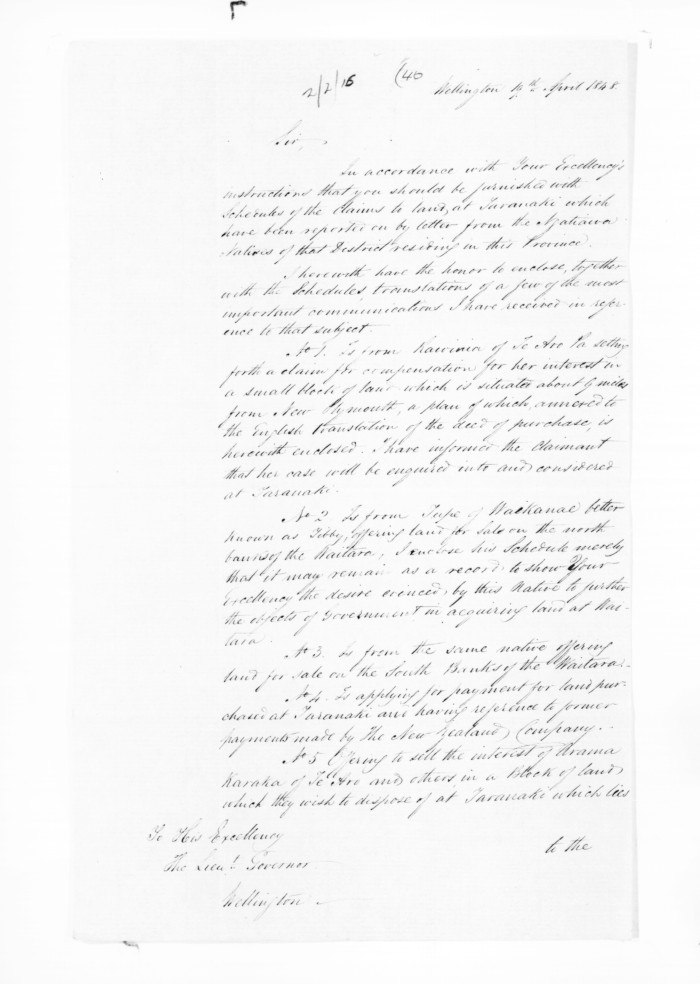 2/2/16 (46
Wellington April 1848.
Sir,
In accordance with Your Excellency's
instructions that you should be furnished with
Schedules of the Claims to land, at Taranaki which
have been reported on by letter from the Ngatiawa
Natives of that District residing in this Province.
I herewith have the honor to enclose, together
with the Schedules, translations of a few of the most
important communications I have received in refer-
ence to that subject.
No 1. Is from Rawinia of Te Aro Pa setting
forth a claim for compensation for her interest in
a small block of land which is situated about 6 miles
from New Plymouth, a plan of which, annexed to
the English translation of the deed of purchase, is
herewith enclosed. I have informed the Claimant
that her case will be enquired into and considered
at Taranaki.
No 2 Is from of Waikanae better
known as Tibby, offering land for Sale on the north
banks of the Waitara, I enclose his Schedule merely
that it may remain as a record to show Your
Excellency the desire evinced by this Native to further
the objects of Government in acquiring land at Wai-
tara.
No 3. Is from the same native offering
land for sale on the South Banks of the Waitara.
No 4. Is applying for payment for land pur-
chased at Taranaki and having reference to former
payments made by the New Zealand Company.
No 5 Offering to sell the interest of Arama
Karaka of Te Aro and others in a Block of land
which they wish to dispose of at Taranaki which lies
to the
To His Excellency
The Lieut. Governor
Wellington